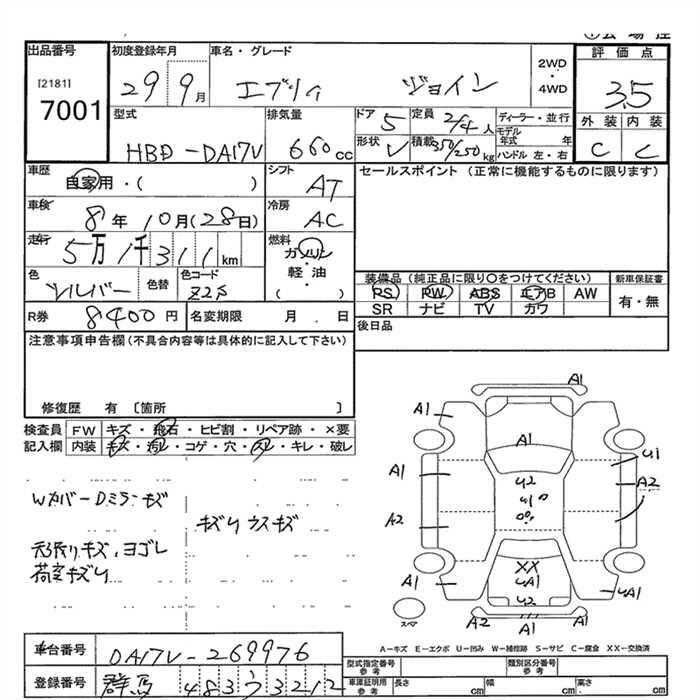 出品番号
[2181]
7001
初度登録年月
29 9月
車名・グレード
エブリィ ジョイン
2WD
・
4WD
評価点
3.5
外装 内装
C C
型式
HBD-DA17V
排気量
660cc
ドア 5
定員 2/4人
形状 V
積載 350/250kg
ディーラー・並行
モデル年式 年
ハンドル 左・右
車歴
自家用・( )
シフト
AT
セールスポイント (正常に機能するものに限ります)
車検
8年10月(28日)
冷房
AC
走行
5万1千311km
燃料
ガソリン
・
軽・油
( )
色
シルバー
色替
色コード
Z2S
装備品 (純正品に限り○をつけてください)
PS PW ABS エアB AW
SR ナビ TV カワ
新車保証書
有・無
R券
8400円
名変期限 月 日
後日品
注意事項申告欄(不具合内容等は具体的に記入して下さい)
修復歴 有 〔箇所 〕
検査員記入欄
FW キズ・飛石・ヒビ割・リペア跡・×要
内装 キズ・汚レ・コゲ・穴・スレ・キレ・破レ
WカバーDミラーキズ
キズ多 ウスキズ
内張りキズ、ヨゴレ
荷室キズ多
A1
A1
A1
U1
A1
U2
A2
U1
A2
XX
A1
UA1
UA1
U2
スペア
A2
A1
A-キズ E-エクボ U-凹み W-補修跡 S-サビ C-腐食 XX-交換済
車台番号
DA17V-269976
登録番号
群馬 483 う 3212
型式指定番号
参考
類別区分番号
参考
車庫証明用
参考
長さ cm
幅 cm
高さ cm